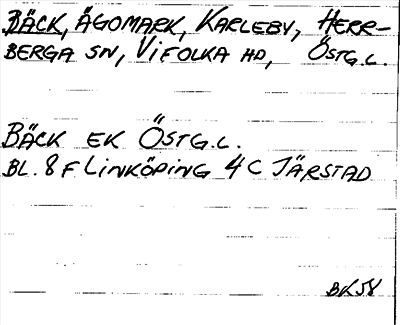 BÄCK, ÄGOMARK, KARLEBY, HERR-
BERGA SN, VIFOLKA HD, ÖSTG.L.
BÄCK EK ÖSTG.L.
BL. 8 F LINKÖPING 4 C JÄRSTAD